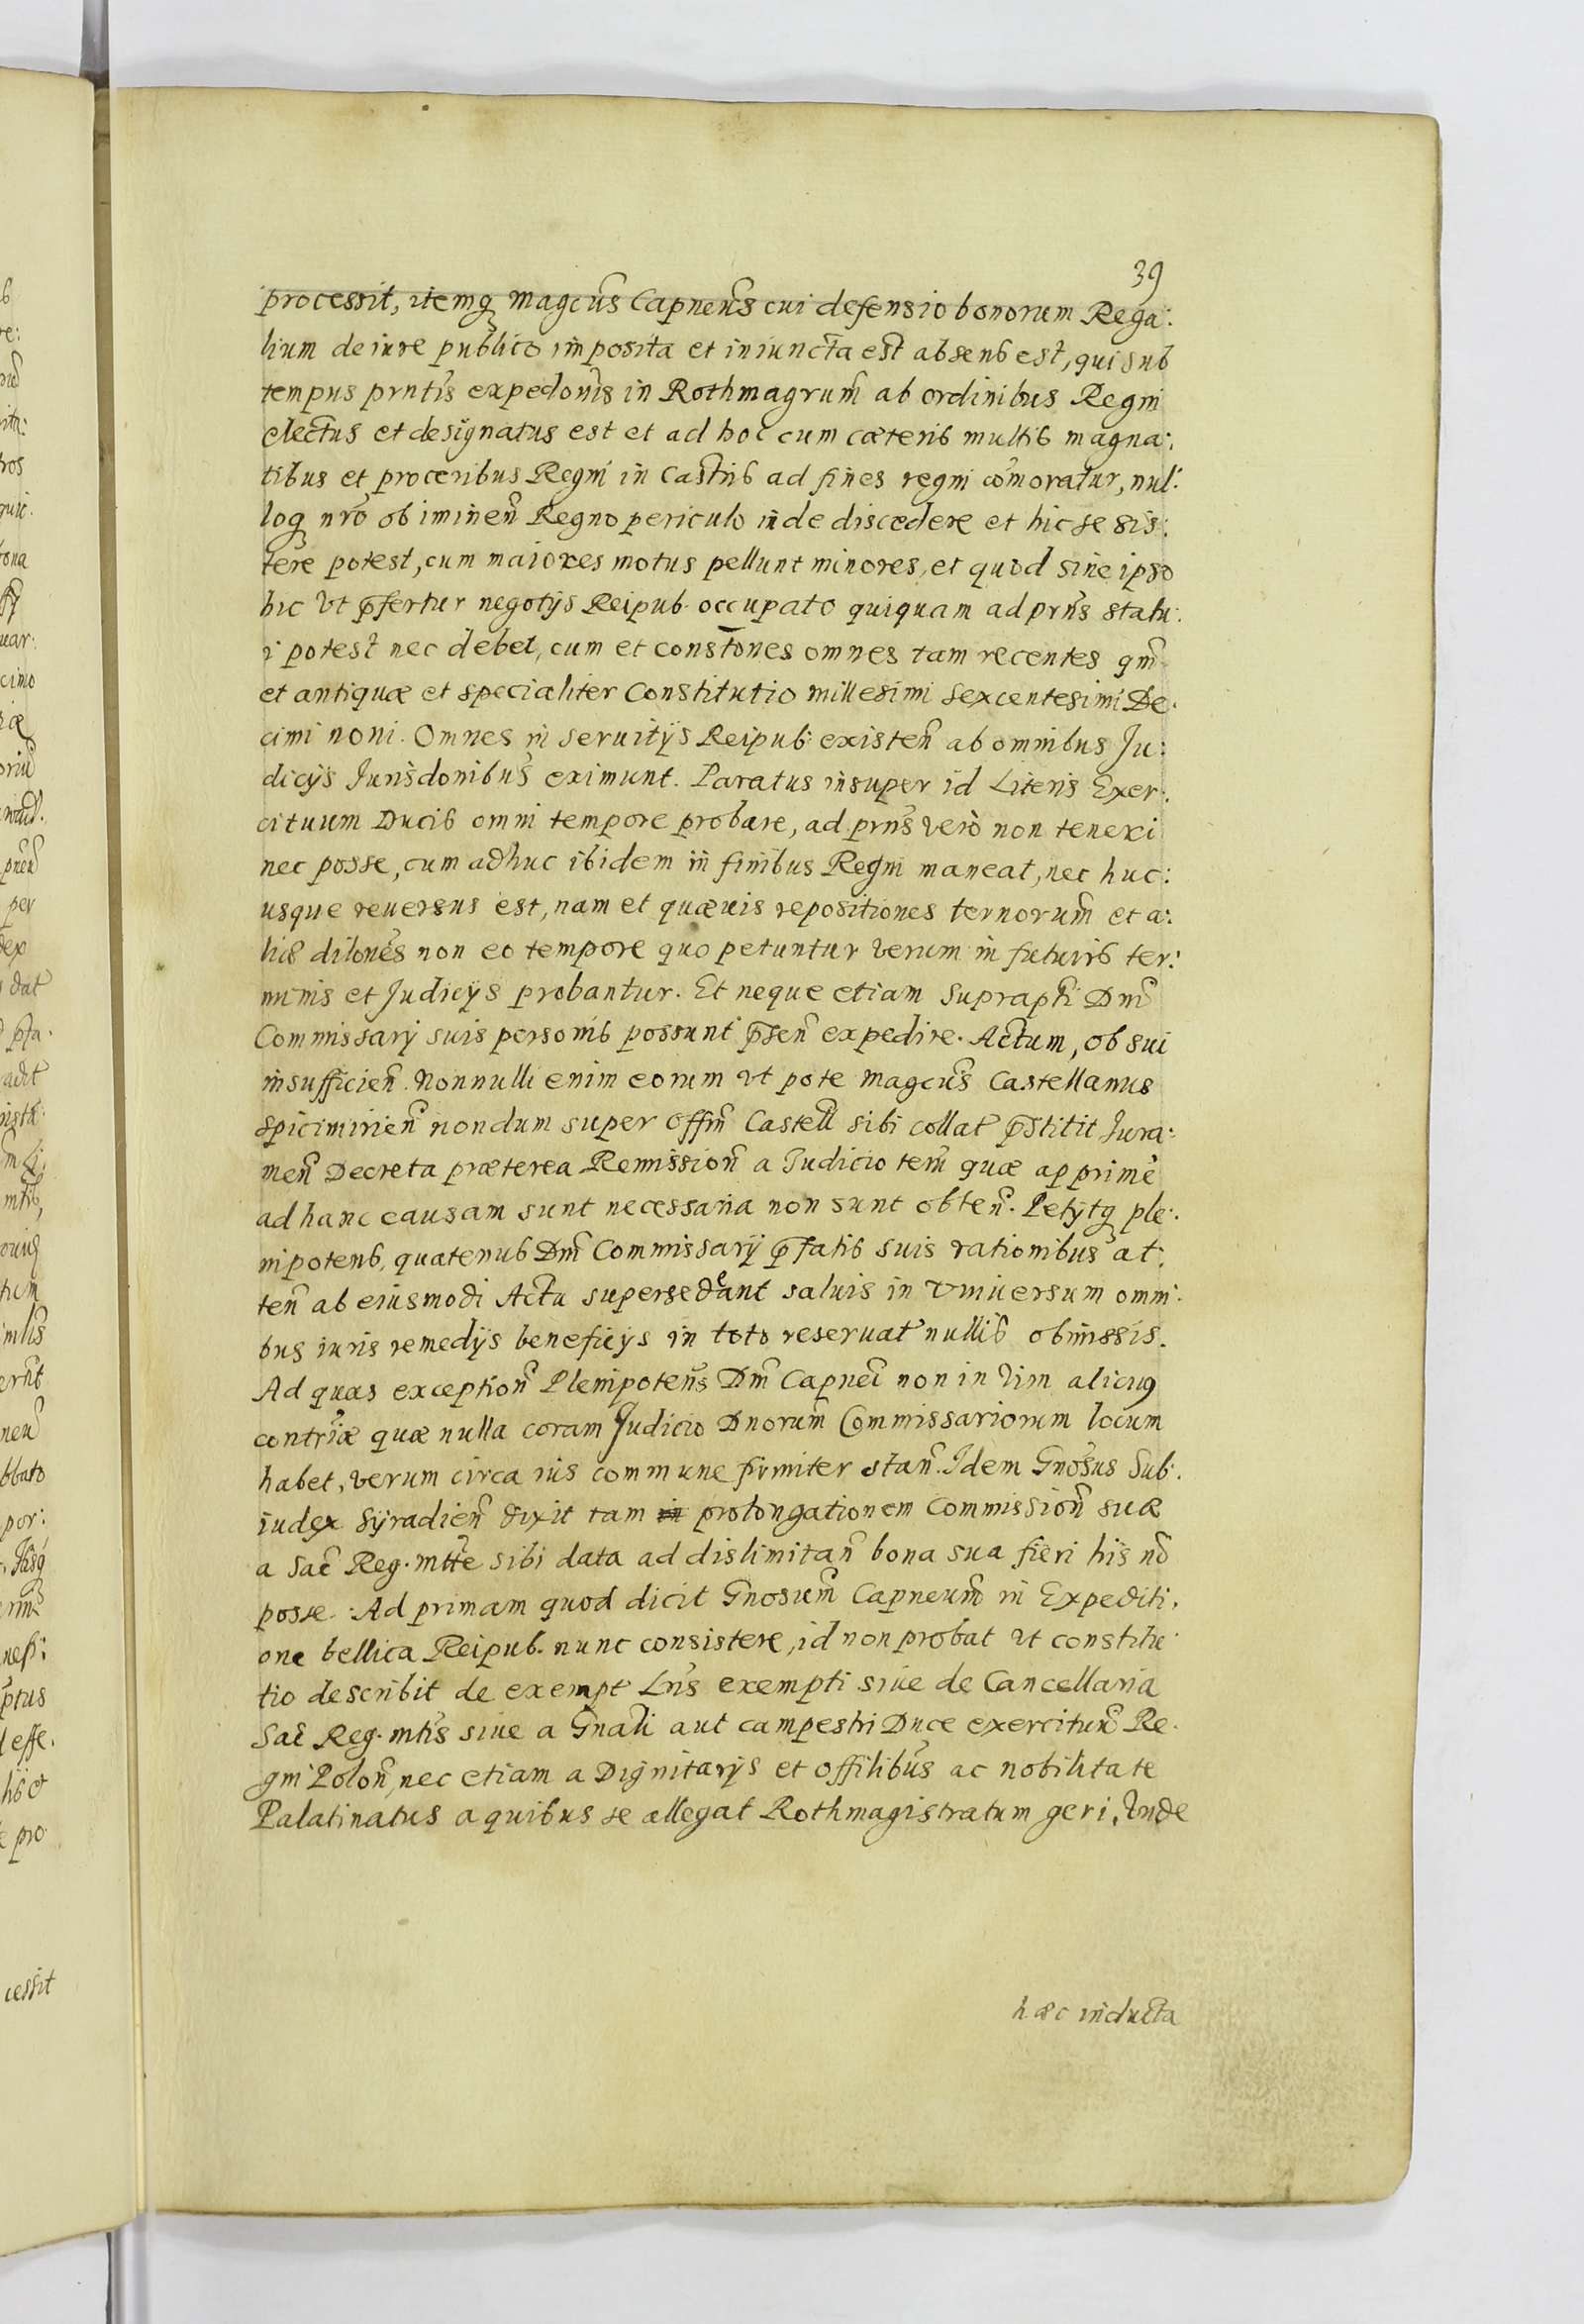 39
processit, itemq magcus Capneus cui defensio bonorum Rega:
lium de iure publico imposita et iniuncta est absens est, qui sub
tempus prntis expedonis in Rothmagrum ab ordinibus Regni
electus et designatus est et ad hoc cum cæteris multis magna:
tibus et proceribus Regni in Castris ad fines regni comoratur, nul:
loq nro ob iminen Regno periculo inde discedere et hic se sis:
tere potest, cum maiores motus pellunt minores, et quod sine ipso
hic vt pfertur negotijs Reipub. occupato quiquam ad prns statu:
i potest nec debet, cum et constones omnes tam recentes qm
et antiquæ et specialiter Constitutio millesimi sexcentesimi De:
cimi noni. Omnes in seruitijs Reipub: existen ab omnibus Ju:
dicijs Jurisdonibus eximunt. Paratus insuper id Literis Exer:
cituum Ducis omni tempore probare, ad prns verò non teneri
nec posse, cum adhuc ibidem in finibus Regni maneat, nec huc:
usque reuersus est, nam et quæuis repositiones ternorum et a:
liæ dilones non eo tempore quo petuntur verum in futuris ter:
minis et Judicijs probantur. Et neque etiam supraphi Dmi
Commissarij suis personis possunt psen expedire. Actum, ob sui
insufficien. Nonnulli enim eorum vt pote magcus Castellanus
spicimirien nondum super offm Castell sibi collat pstitit Jura:
men Decreta præterea Remission a Judicio tem quæ apprimè
ad hanc causam sunt necessaria non sunt obten. Petijtq ple:
nipotens, quatenus Dmi Commissarij pfatis suis rationibus at:
ten ab eiusmodi Actu supersedeant saluis in vniuersum omni:
bus iuris remedijs beneficijs in toto reseruat nullis obmissis.
Ad quas exception Plenipotens Dmi Capnei non in vim alicuq
contriæ quæ nulla coram Judicio Dnorum Commissariorum locum
habet, verum circa ius commune firmiter stan. Idem Gnosus Sub:
iudex Syradien dixit tam in prolongationem Commission suæ
a Sac Reg. mtte sibi data ad dislimitan bona sua fieri his no
posse. Ad primam quod dicit Gnosum Capneum in Expediti:
one bellica Reipub. nunc consistere, id non probat vt constitu:
tio describit de exempt Lris exempti siue de Cancellaria
Sac Reg. mtis siue a Gnali aut campestri Duce exercitum Re:
gni Polon, nec etiam a Dignitarijs et offilibus ac nobilitate
Palatinatus a quibus se allegat Rothmagistratum geri, Vnde
hæc inducta